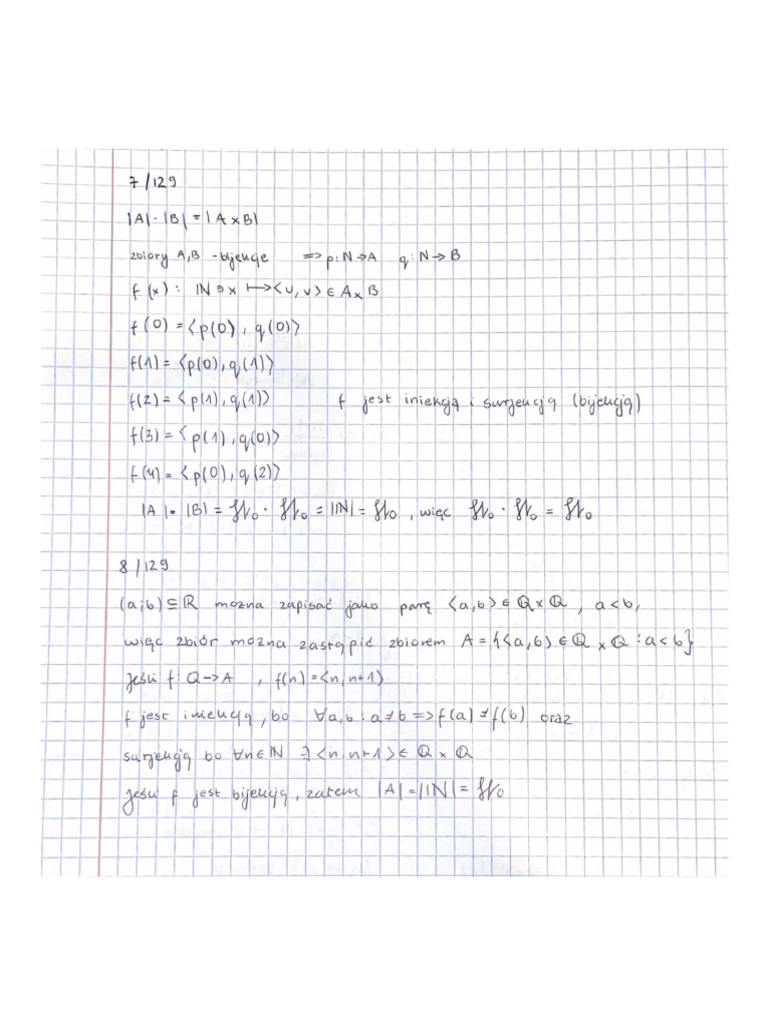 7/129
|A|·|B| = |A×B|
zbiory A,B - bijekcje => p: N→A q: N→B
f(x): ℕ∋x ↦ <u,v> ∈ A×B
f(0) = <p(0), q(0)>
f(1) = <p(0), q(1)>
f(2) = <p(1), q(1)> f jest iniekcją i surjekcją (bijekcją)
f(3) = <p(1), q(0)>
f(4) = <p(0), q(2)>
|A|·|B| = ℵ₀ · ℵ₀ = |ℕ| = ℵ₀, więc ℵ₀ · ℵ₀ = ℵ₀
8/129
(a;b) ⊆ ℝ można zapisać jako parę <a,b> ∈ ℚ×ℚ, a<b,
więc zbiór można zastąpić zbiorem A = {<a,b> ∈ ℚ×ℚ : a<b}
Jeśli f: Q→A, f(n) = <n, n+1>
f jest iniekcją, bo ∀a,b : a≠b => f(a) ≠ f(b) oraz
surjekcją bo ∀n∈ℕ ∃ <n, n+1> ∈ ℚ × ℚ
Jeśli f jest bijekcją, zatem |A| = |ℕ| = ℵ₀